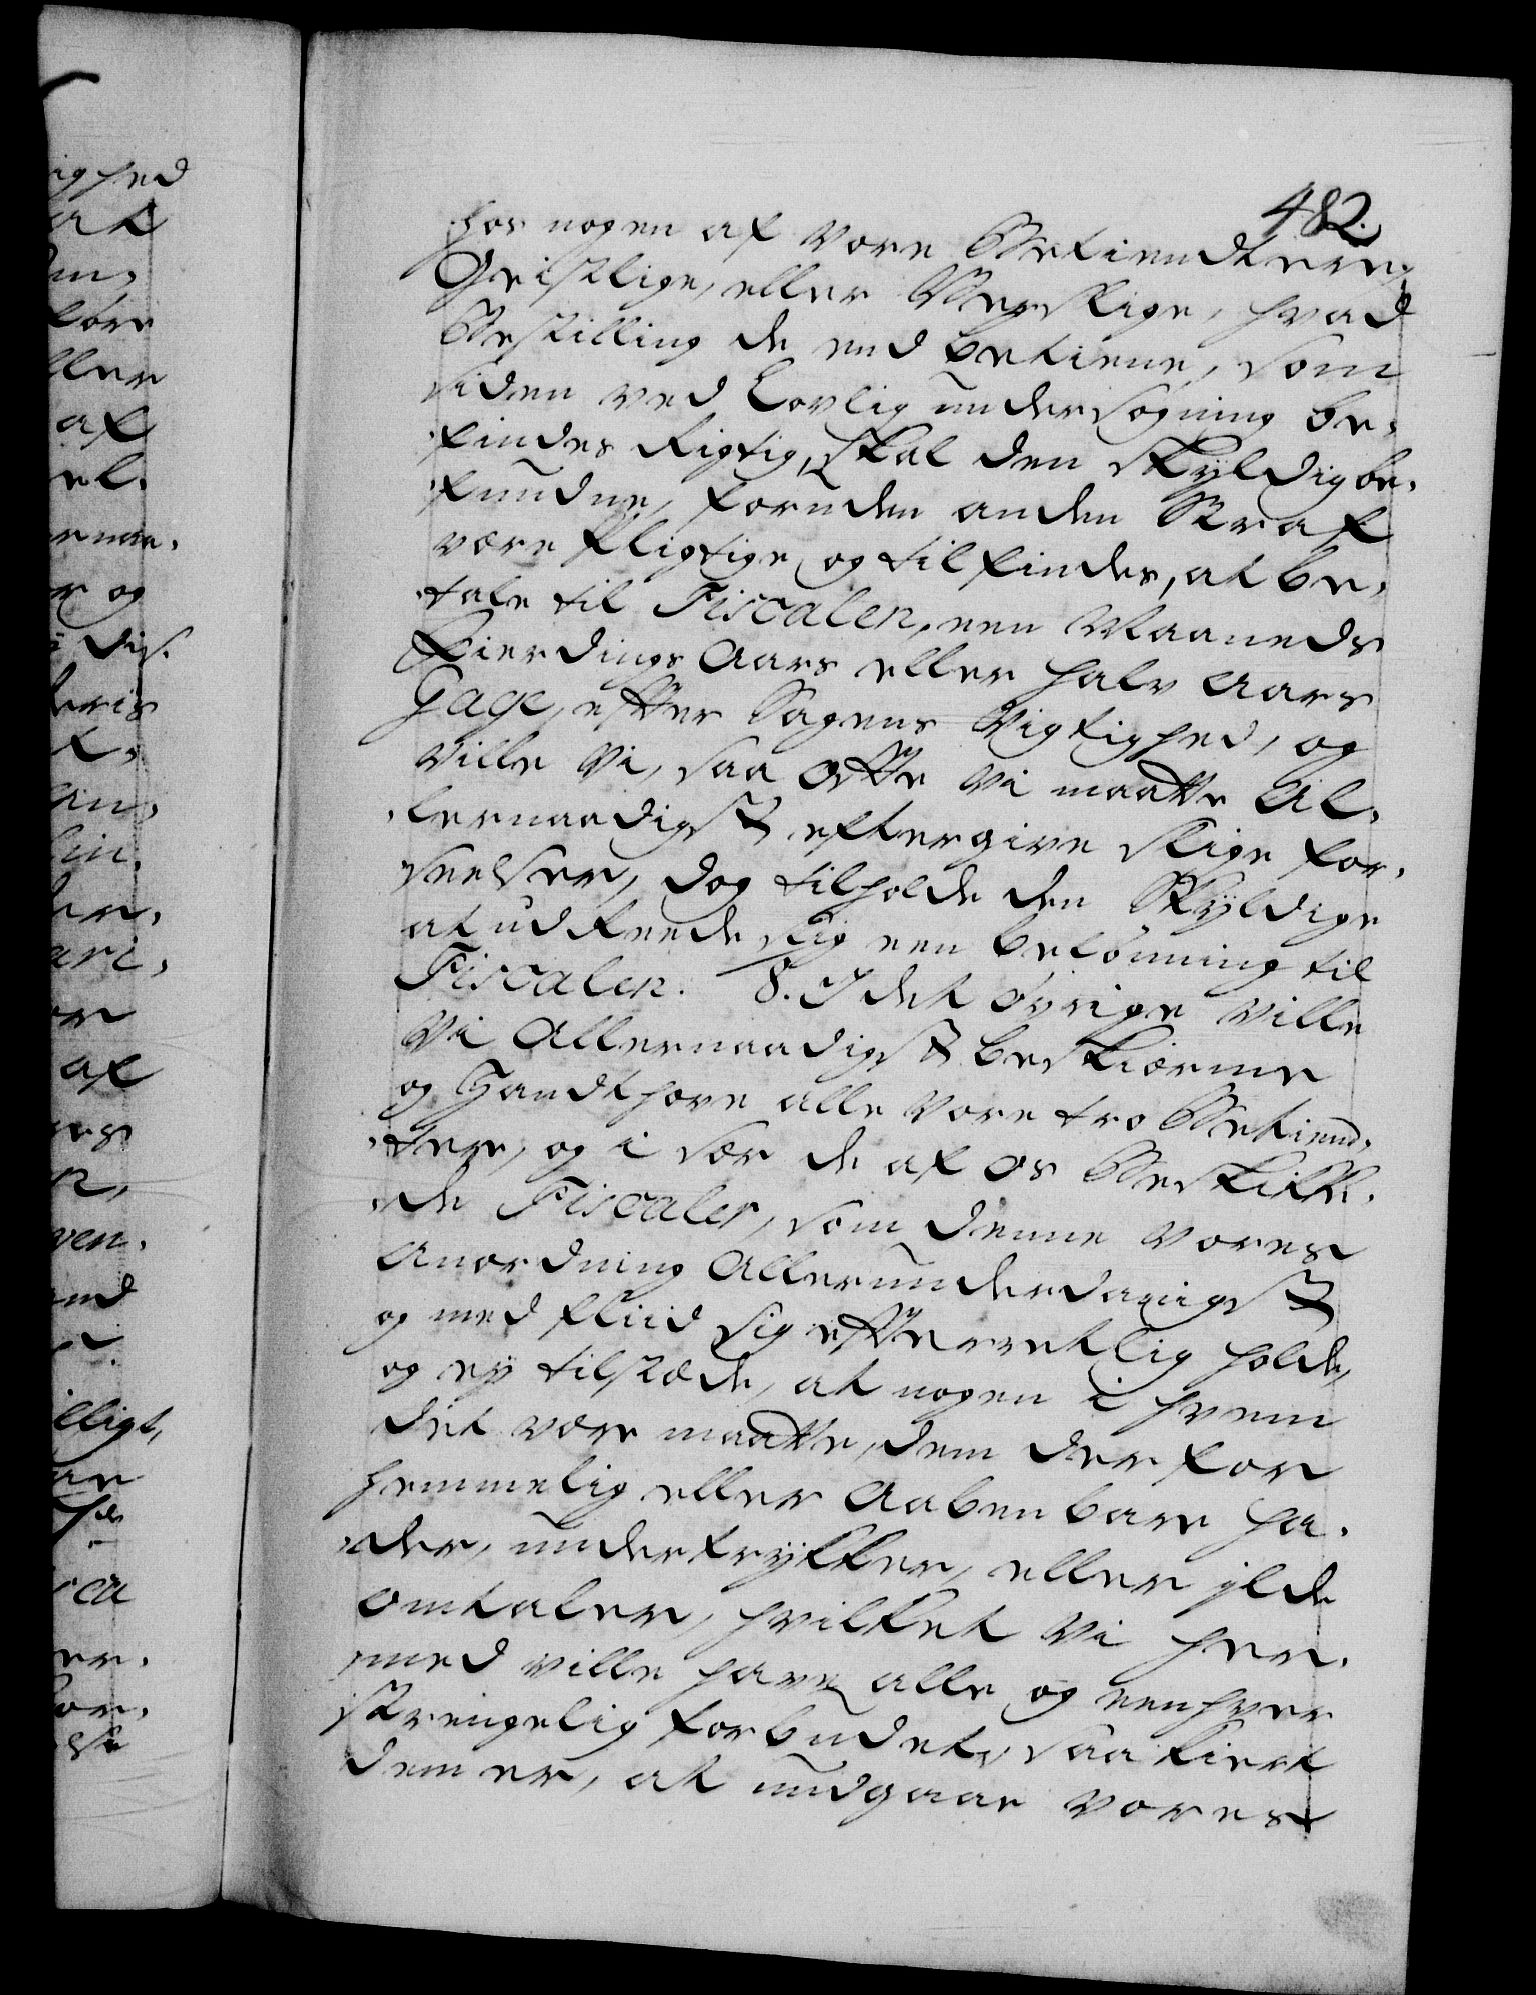 482.
hos nogen af vore Betiendtere,
Geistlige, eller Verslige, hvad
Bestilling de end betiene, som
siden ved Lovlig undersøgning be-
findes Rigtig, skal den skyldig be-
fundne, foruden anden Straf
være pligtige og tilfindes, at be-
tale til Fiscalen, een Maaneds
Fierdings Aars eller halv Aars
Gage, efter Sagens Vigtighed, og
ville Vi, saa ofte Vi maatte Al-
lernaadigst eftergive slige for-
seelser, dog tilholde den Skyldige
at udreede slig een belønning til
Fiscalen. 8. I det øvrige ville
Vi Allernaadigst beskiærme
og Handthæve alle Vore tro Betiend-
tere, og i sær de af os Beskikke-
de Fiscaler, som denne Vores
Anordning Allerunderdanigst
og med fliid sig efterretlig holde,
og ey tilstæde, at nogen i hvem
det være maatte, dem derfor
hemmelig eller Aabenbare ha-
der, undertrykker, eller ilde
omtaler, hvilket Vi her-
med ville have alle og eenhver
strengelig forbudet, saa kiert
dem er, at undgaae Vores
ighed
af
el.
og
an,
ler